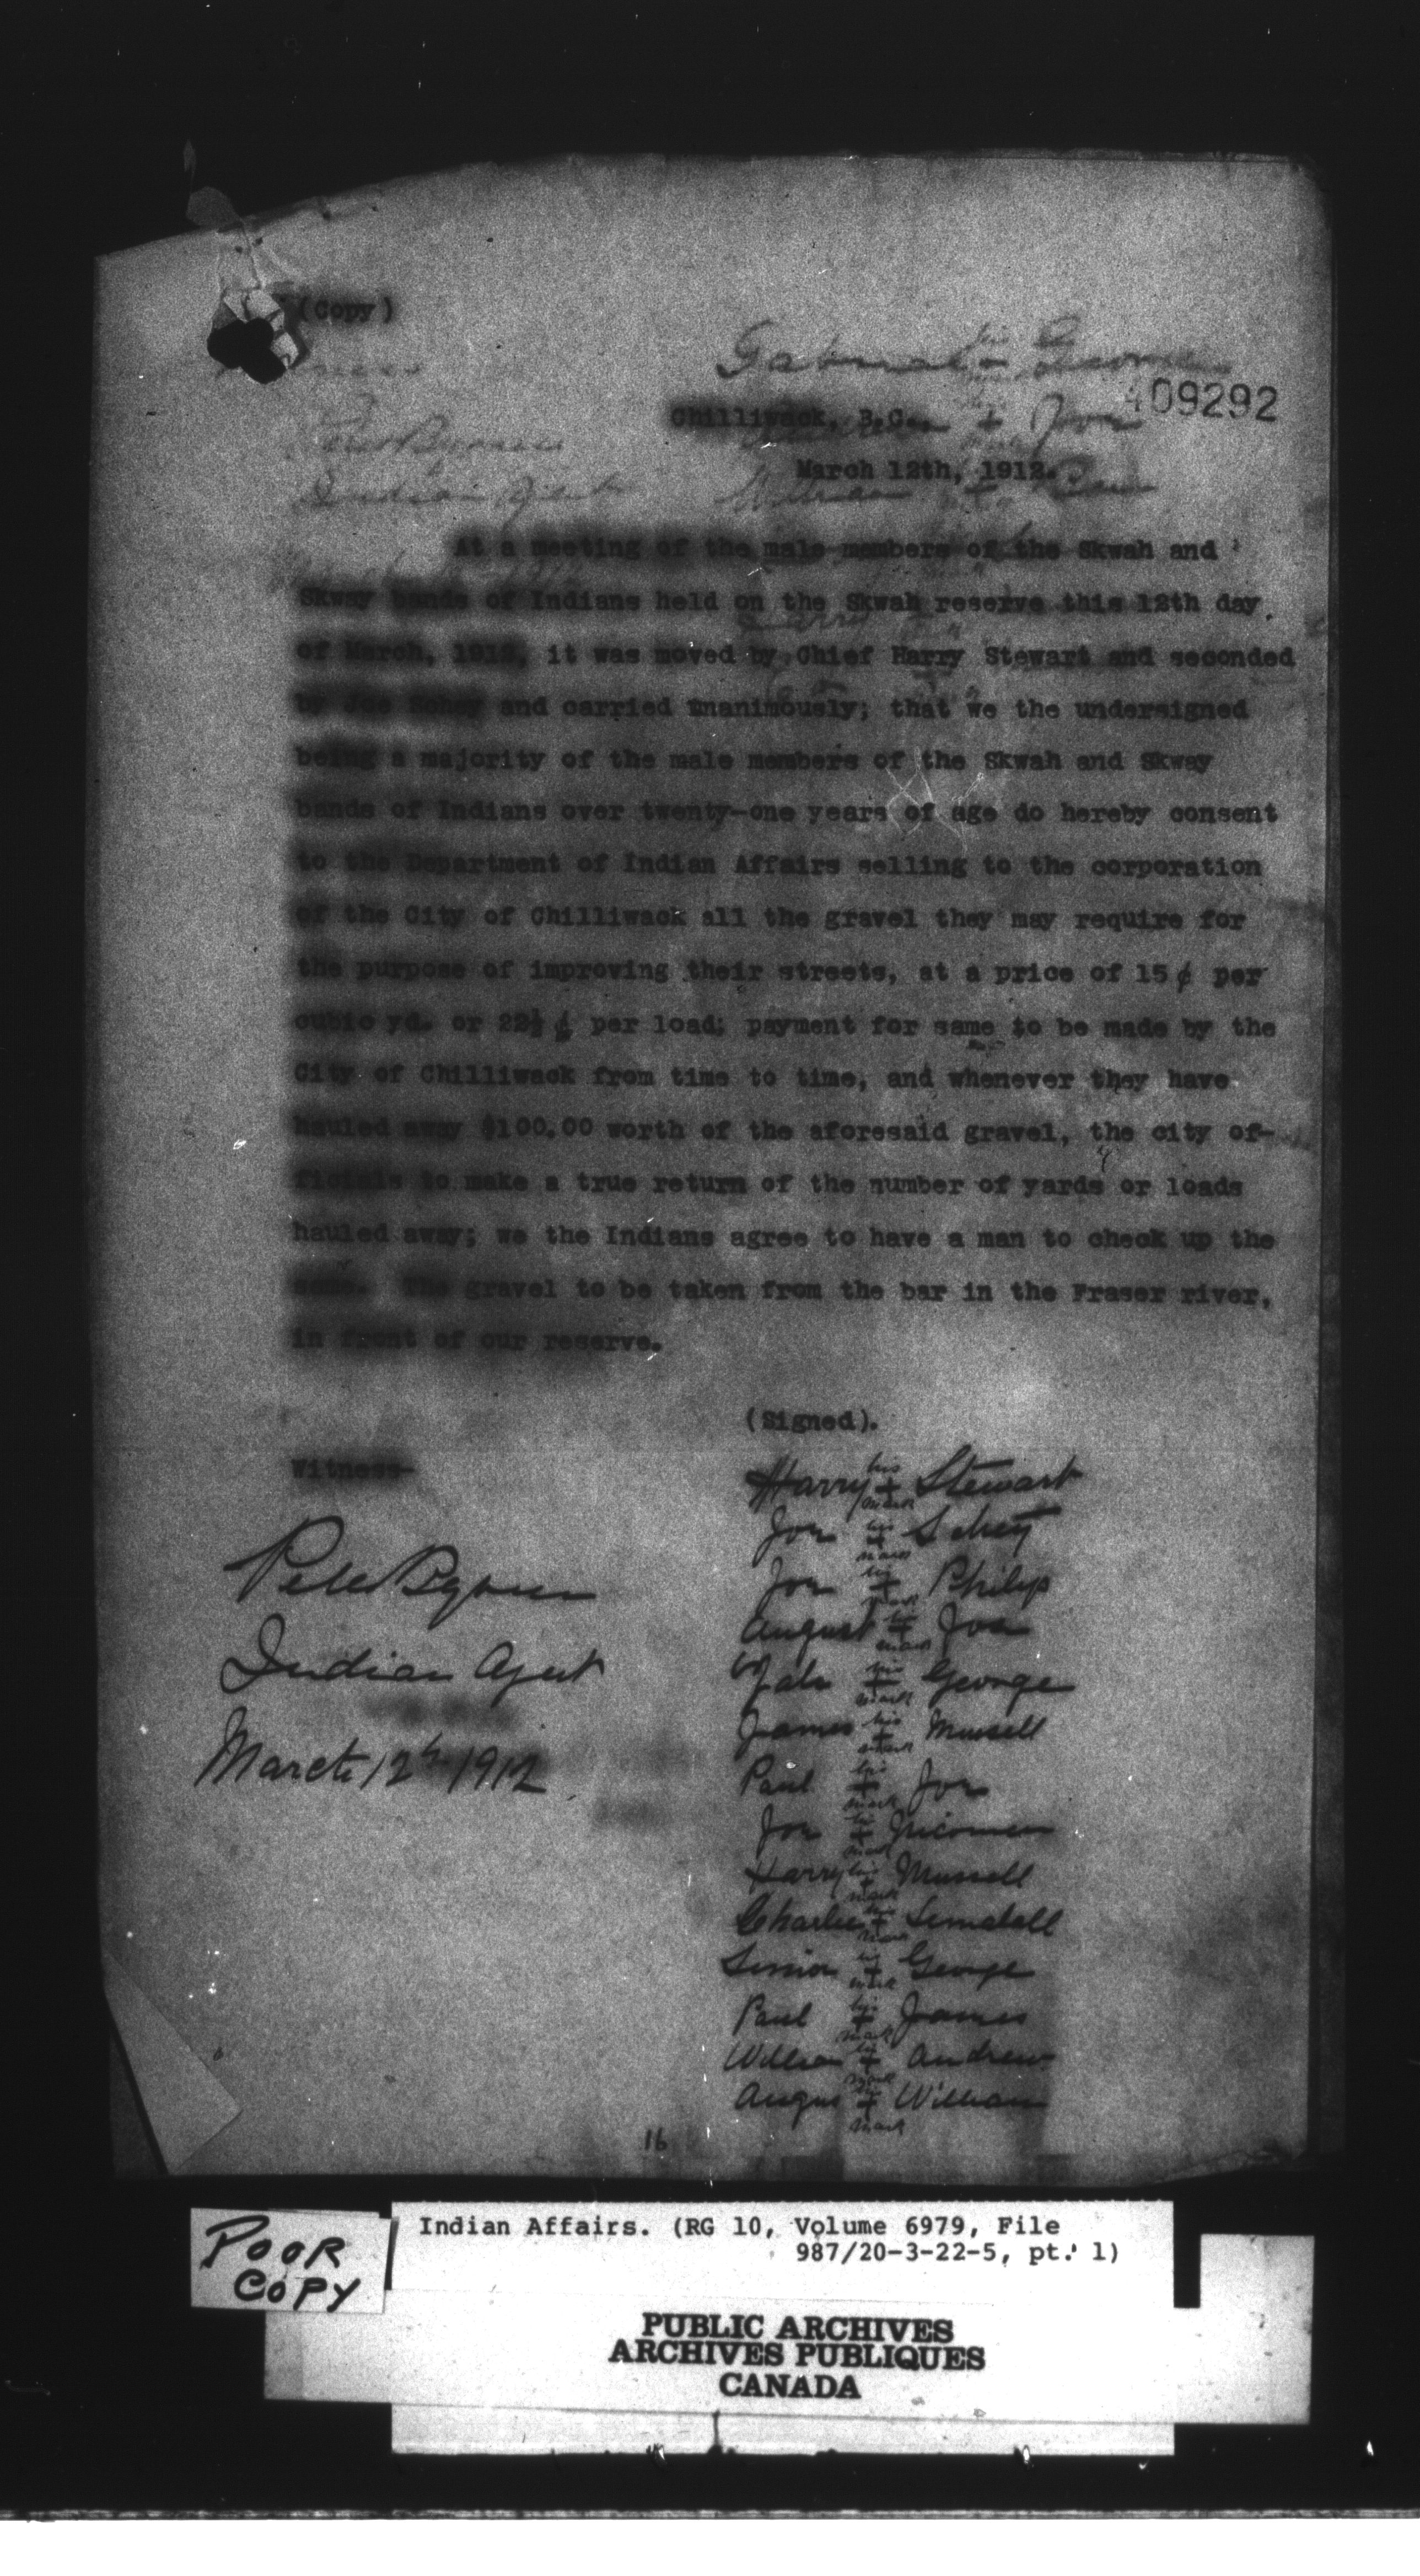 (Copy)
409292
Chilliwack, B.C.,
March 12th, 1912.
At a meeting of the male members of the Skwah and
Skway bands of Indians held on the Skwah reserve this 12th day
of March, 1912, it was moved by Chief Harry Stewart and seconded
by Joe Sohey and carried unanimously; that we the undersigned
being a majority of the male members of the Skwah and Skway
bands of Indians over twenty-one years of age do hereby consent
to the Department of Indian Affairs selling to the corporation
of the City of Chilliwack all the gravel they may require for
the purpose of improving their streets, at a price of 15 ¢ per
cubic yd. or 22½ ¢ per load; payment for same to be made by the
City of Chilliwack from time to time, and whenever they have
hauled away $100.00 worth of the aforesaid gravel, the city of-
ficials to make a true return of the number of yards or loads
hauled away; we the Indians agree to have a man to check up the
same. The gravel to be taken from the bar in the Fraser river,
in front of our reserve.
(Signed).
Witness-
Harry his + mark Stewart
Joe his + mark
Joe his + mark Philip
August his + mark Joe
his + mark George
James his + mark Mussell
Paul his + mark Joe
Joe his + mark
Harry his + mark Mussell
Charlie his + mark
his + mark George
Paul his + mark James
William his + mark Andrew
his + mark William
Peter Byrne
Indian Agent
March 12th 1912
16
POOR
COPY
Indian Affairs. (RG 10, Volume 6979, File
987/20-3-22-5, pt. 1)
PUBLIC ARCHIVES
ARCHIVES PUBLIQUES
CANADA